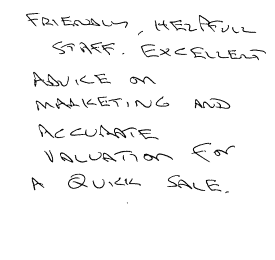 FRIENDLY, HELPFULL
STAFF. EXCELLENT
ADVICE ON
MARKETING AND
ACCURATE
VALUATION FOR
A QUICK SALE.